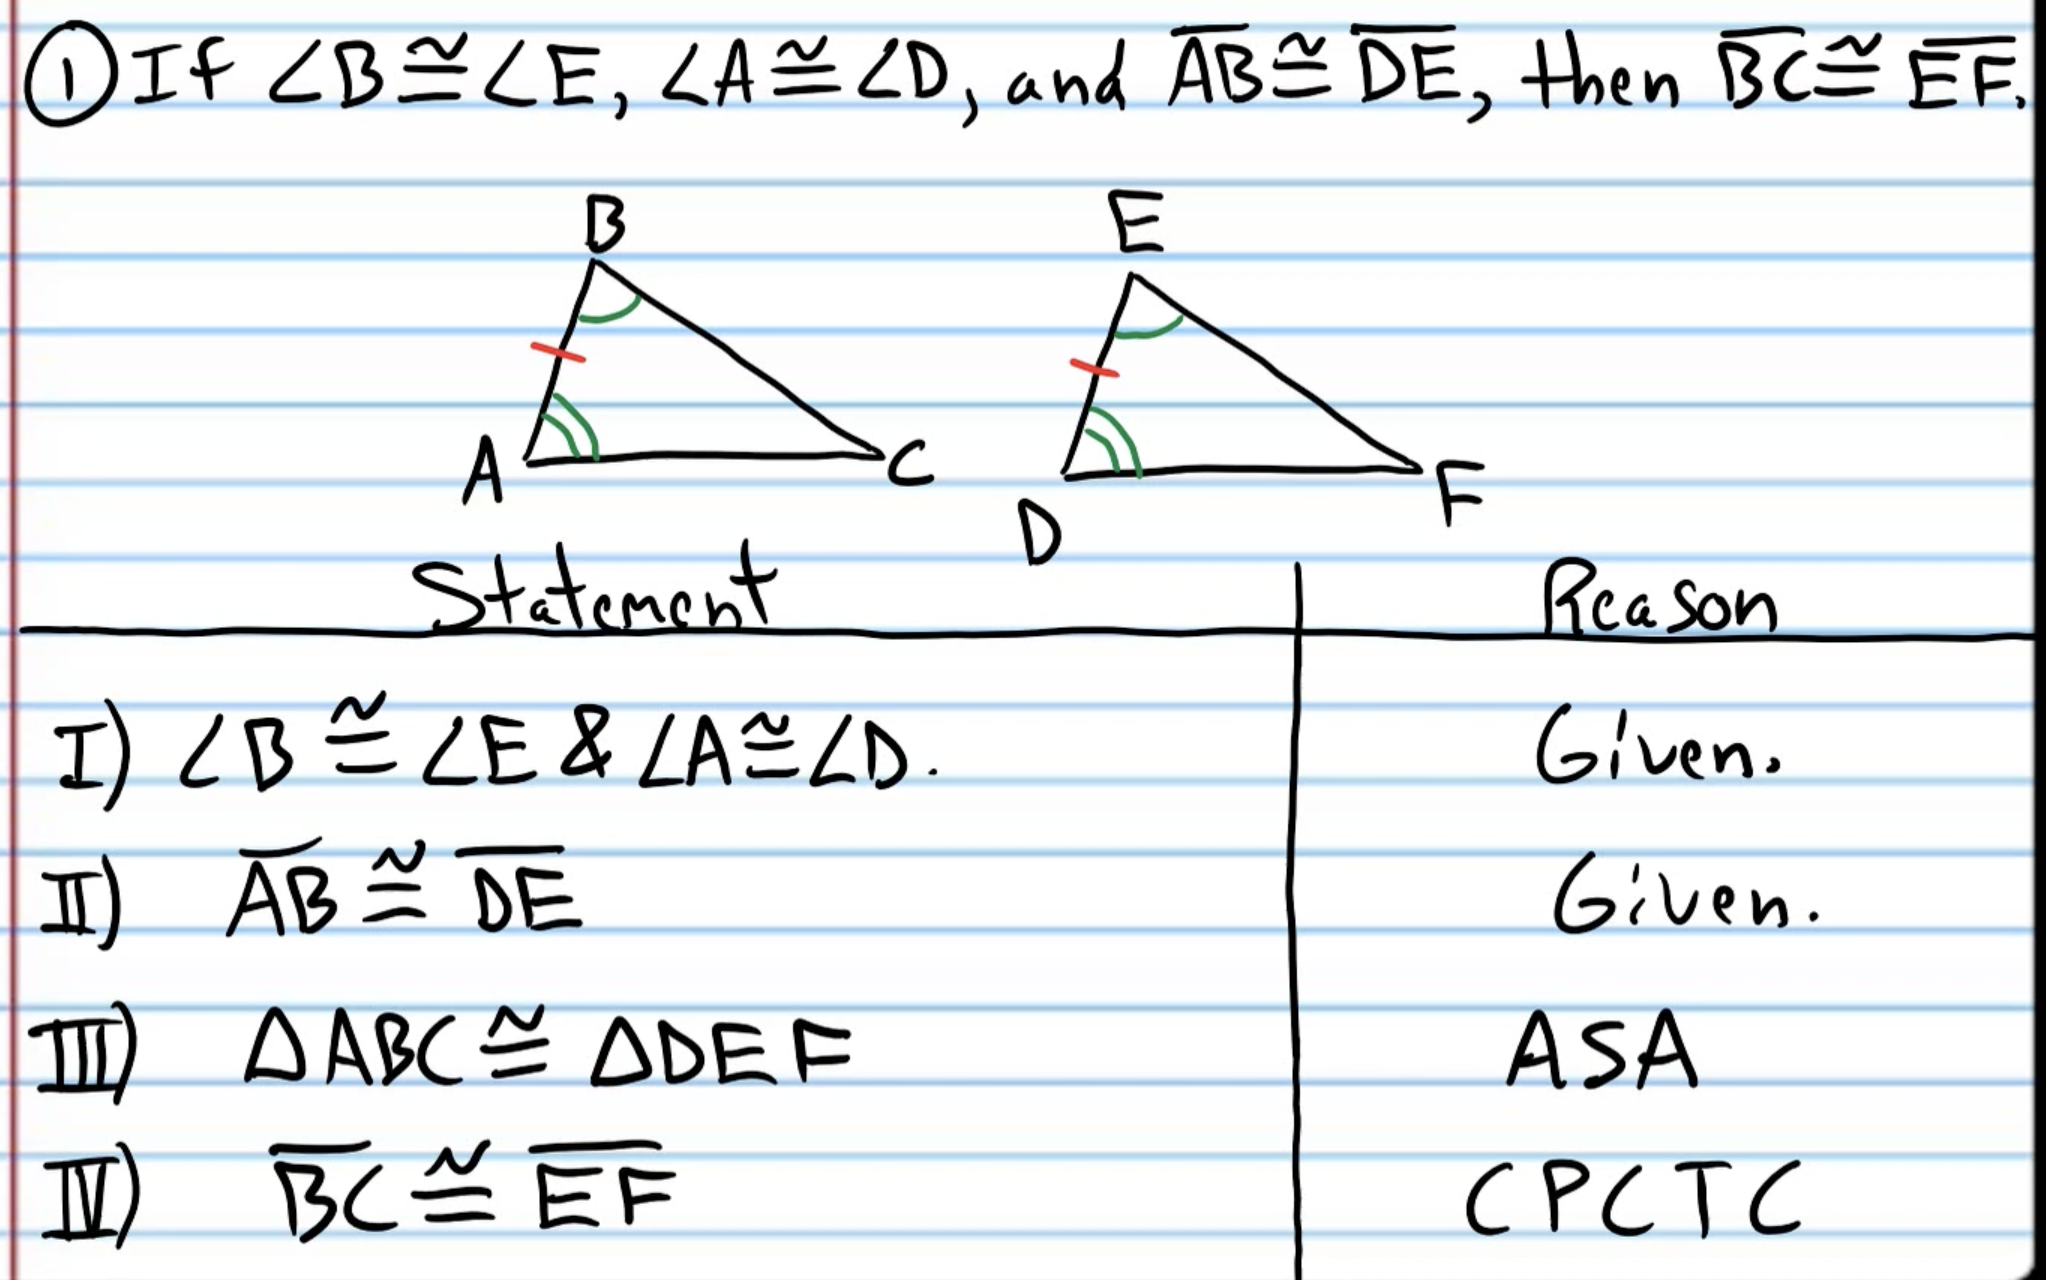 ① If ∠B ≅ ∠E, ∠A ≅ ∠D, and A̅B̅ ≅ D̅E̅, then B̅C̅ ≅ E̅F̅.
B E
A C D F
Statement Reason
I) ∠B ≅ ∠E & ∠A ≅ ∠D. Given.
II) A̅B̅ ≅ D̅E̅ Given.
III) △ABC ≅ △DEF ASA
IV) B̅C̅ ≅ E̅F̅ CPCTC